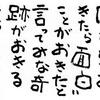 きたら面白
ことがおきたと
言ってみな奇
跡がおきる